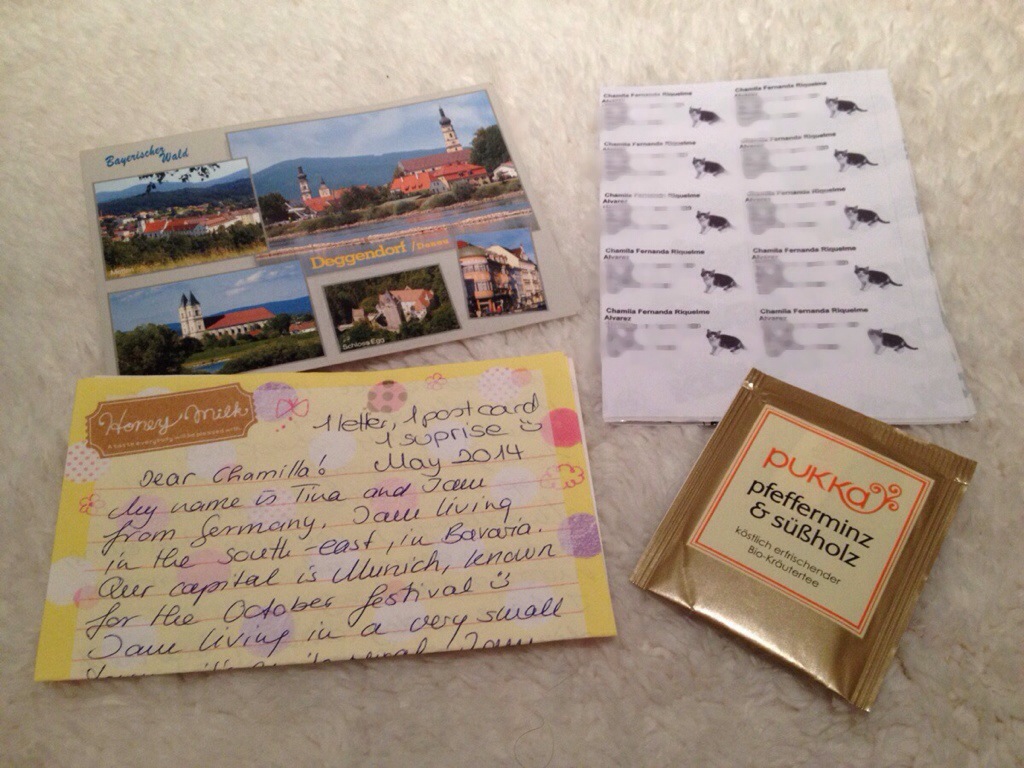 Bayerischer
Wald
Deggendorf / Donau
Schloss Egg
Chamila Fernanda Riquelme
Alvarez
Chamila Fernanda Riquelme
Alvarez
Chamila Fernanda Riquelme
Chamila Fernanda Riquelme
Alvarez
Chamila Fernanda Riquelme
Alvarez
Chamila Fernanda Riquelme
Alvarez
Chamila Fernanda Riquelme
Alvarez
Chamila Fernanda Riquelme
Alvarez
Chamila Fernanda Riquelme
Alvarez
Chamila Fernanda Riquelme
Alvarez
Honey Milk
1 letter, 1 postcard
1 suprise
May 2014
Dear Chamilla!
My name is Tina and I am
from Germany. I am living
in the south-east, in Bavaria.
Our capital is Munich, known
for the October festival
I am living in a very small
pukka
pfefferminz
& süßholz
köstlich erfrischender
Bio-Kräutertee